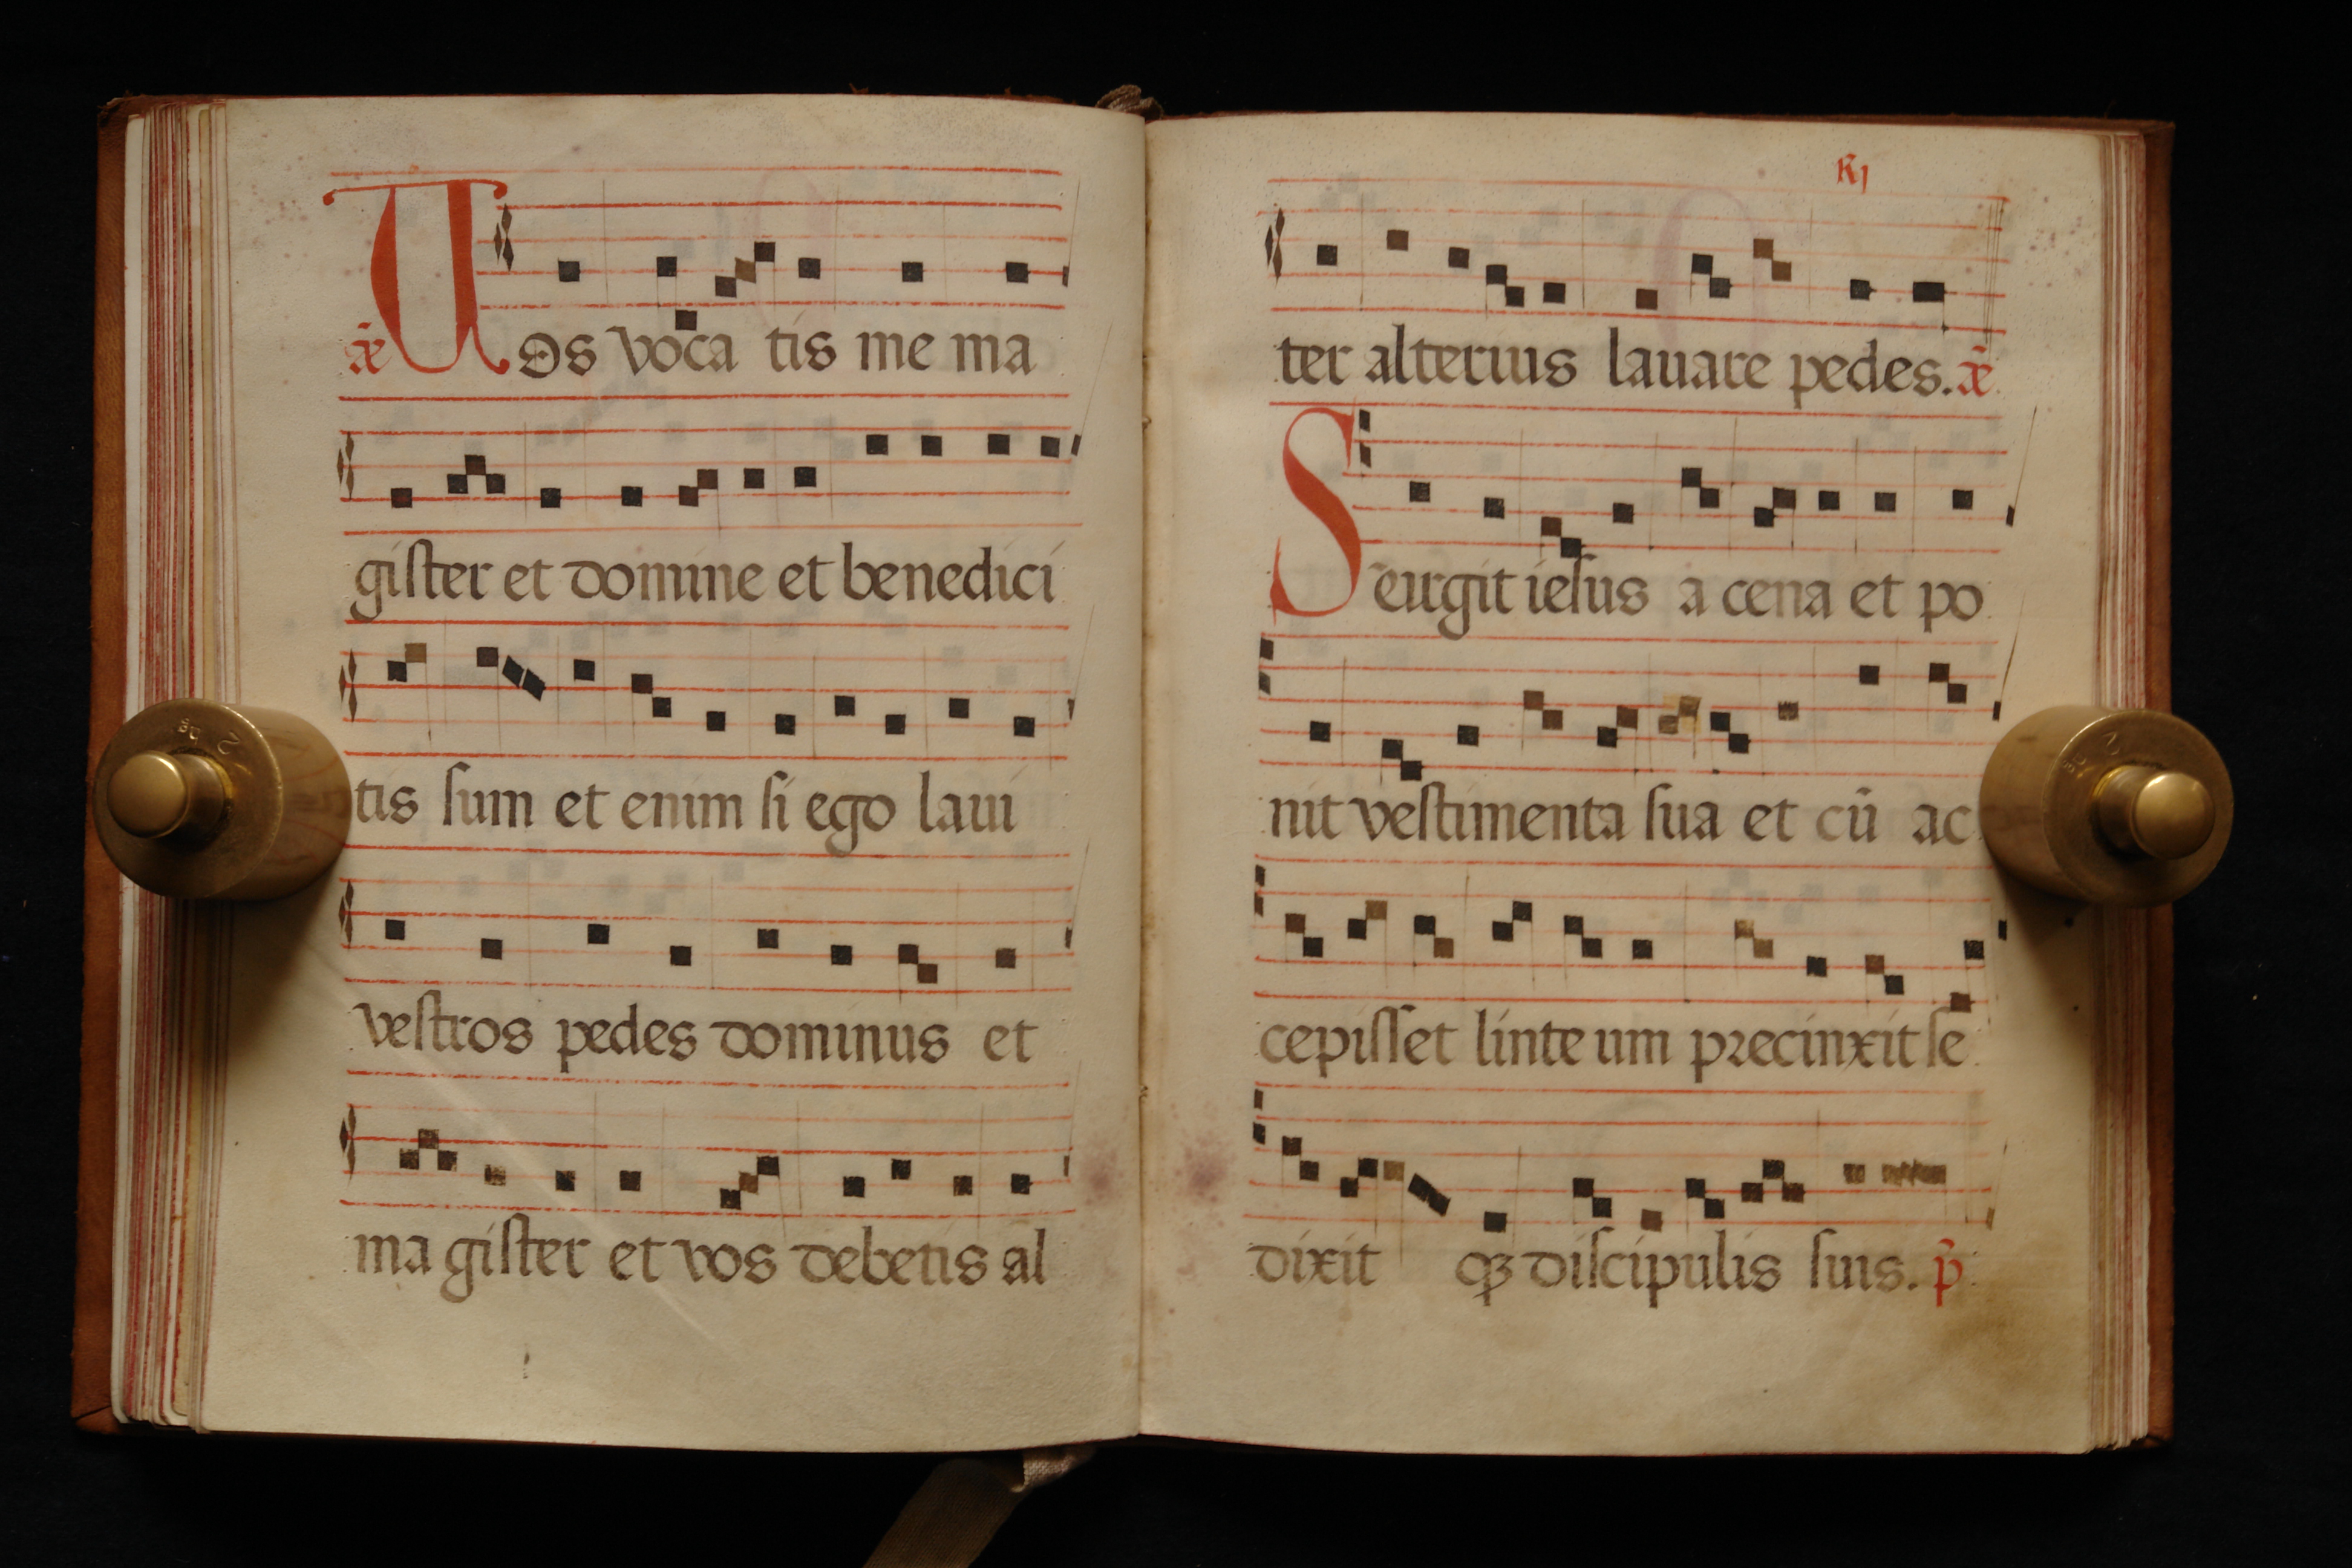 ã Uos voca tis me ma
gister et domine et benedici
tis sum et enim si ego laui
vestros pedes dominus et
ma gister et vos debetis al
ter alterius lauare pedes. ã
Seurgit iesus a cena et po
nit vestimenta sua et cū ac
cepisset linte um precinxit se
dixit qʒ discipulis suis. p̄